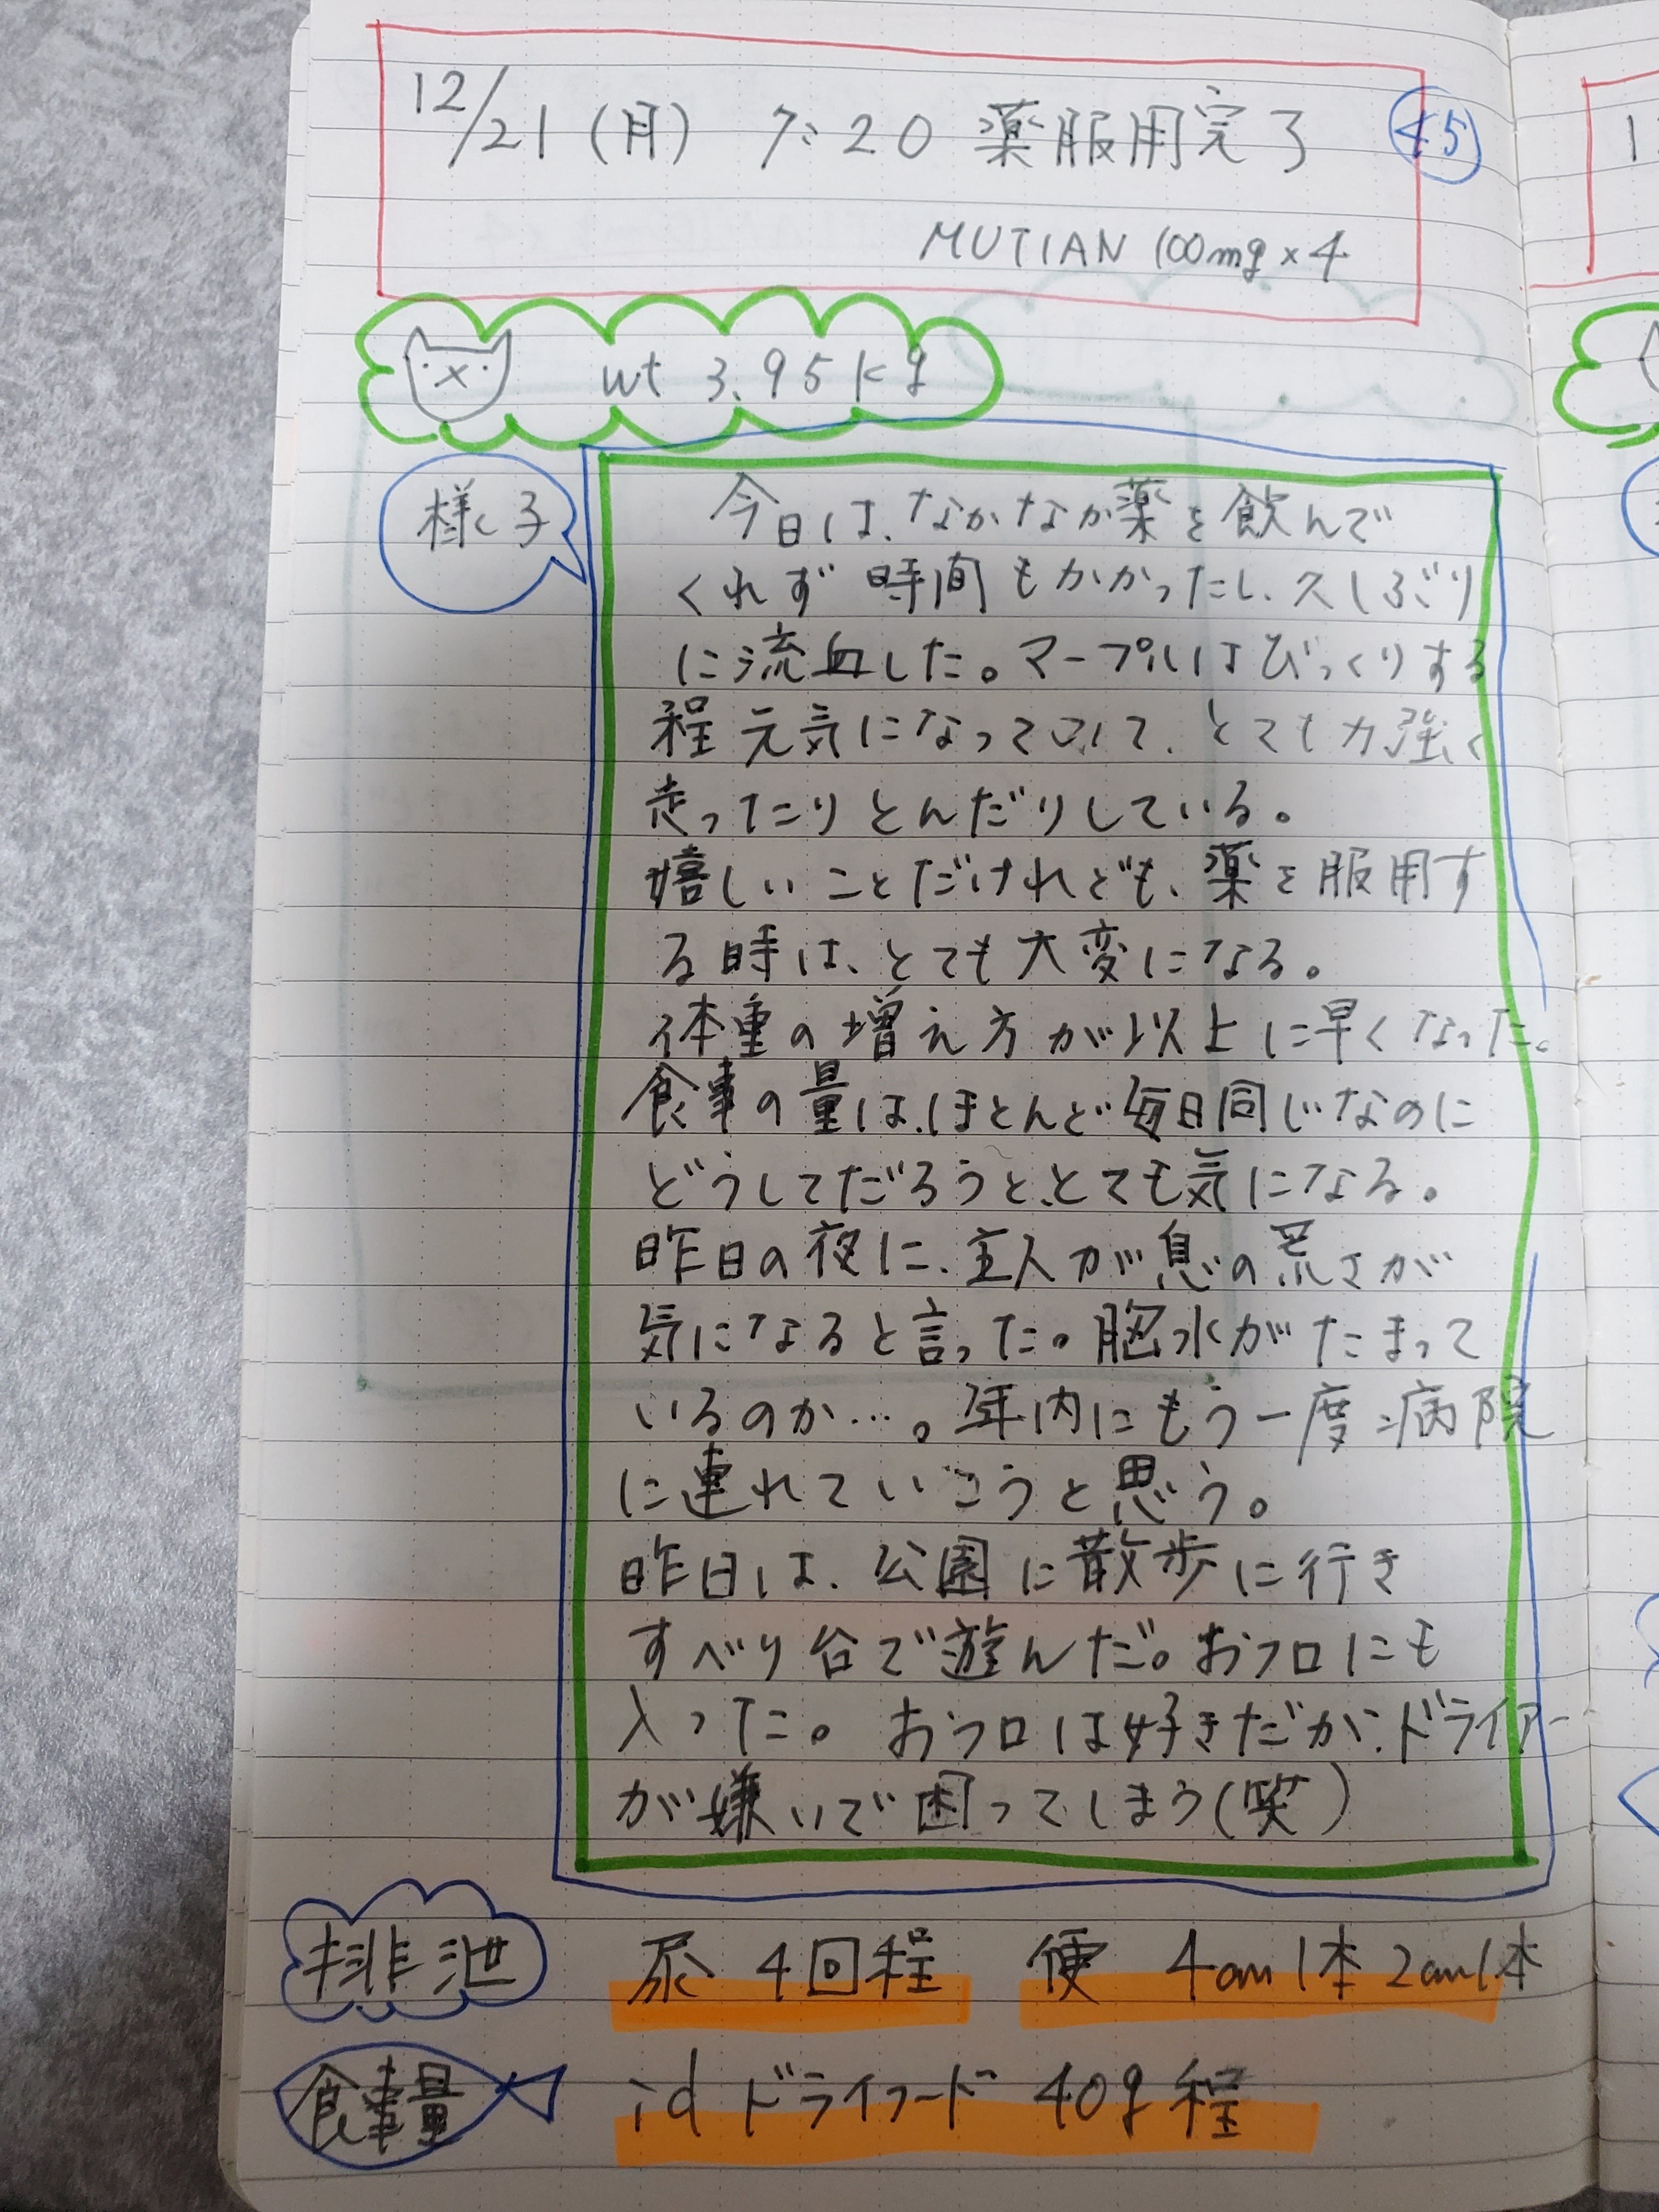 12/21(月) 7:20 薬服用完了 45
MUTIAN 100mg×4
wt 3.95kg
様子
今日は、なかなか薬を飲んで
くれず時間もかかったし、久しぶり
に流血した。マープルはびっくりする
程元気になっていて、とても力強く
走ったりとんだりしている。
嬉しいことだけれども、薬を服用す
る時は、とても大変になる。
体重の増え方が以上に早くなった。
食事の量は、ほとんど毎日同じなのに
どうしてだろうと、とても気になる。
昨日の夜に、主人が息の荒さが
気になると言った。胸水がたまって
いるのか…。年内にもう一度病院
に連れていこうと思う。
昨日は、公園に散歩に行き
すべり台で遊んだ。おフロにも
入った。おフロは好きだが、ドライアー
が嫌いで困ってしまう(笑)
排泄 尿 4回程 便 4cm1本 2cm1本
食事量 id ドライフード 40g程